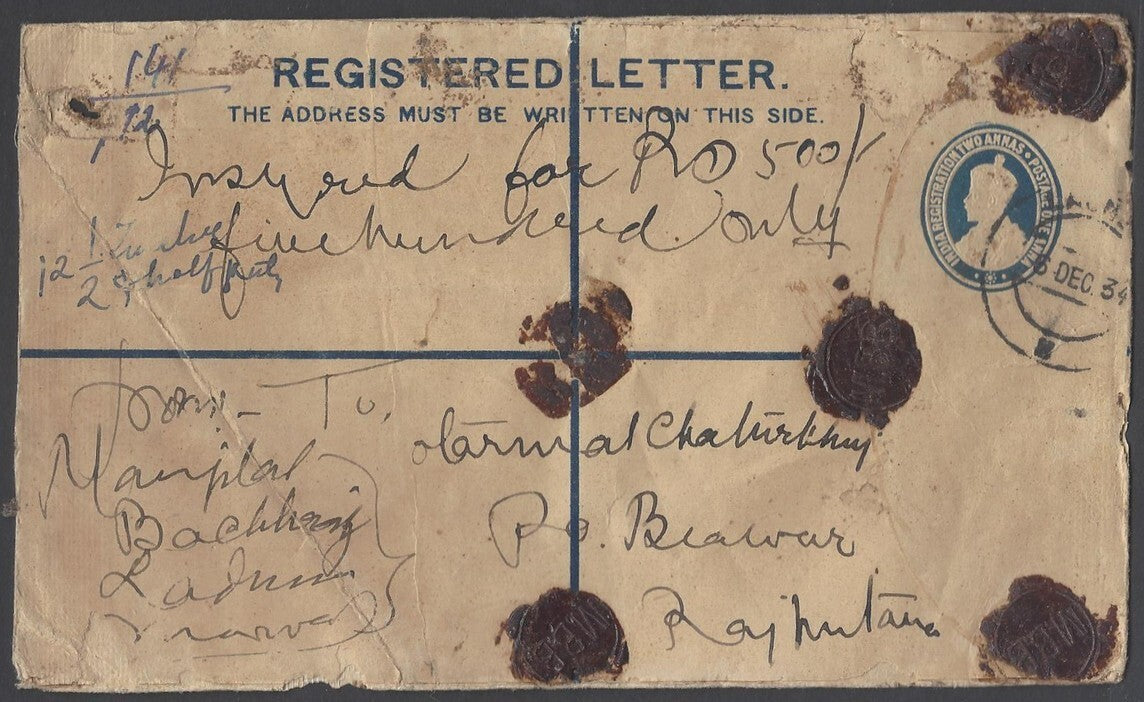 141
12
REGISTERED LETTER.
THE ADDRESS MUST BE WRITTEN ON THIS SIDE.
INDIA REGISTRATION TWO ANNAS • POSTAGE ONE ANNA
Insured for Rs 500/
five hundred only
12 1/2 Twelve
& half
DEC. 34
From - To,
Chaturbhuj
Bachhraj
P.O. Beawar
Ladnu
Rajputana